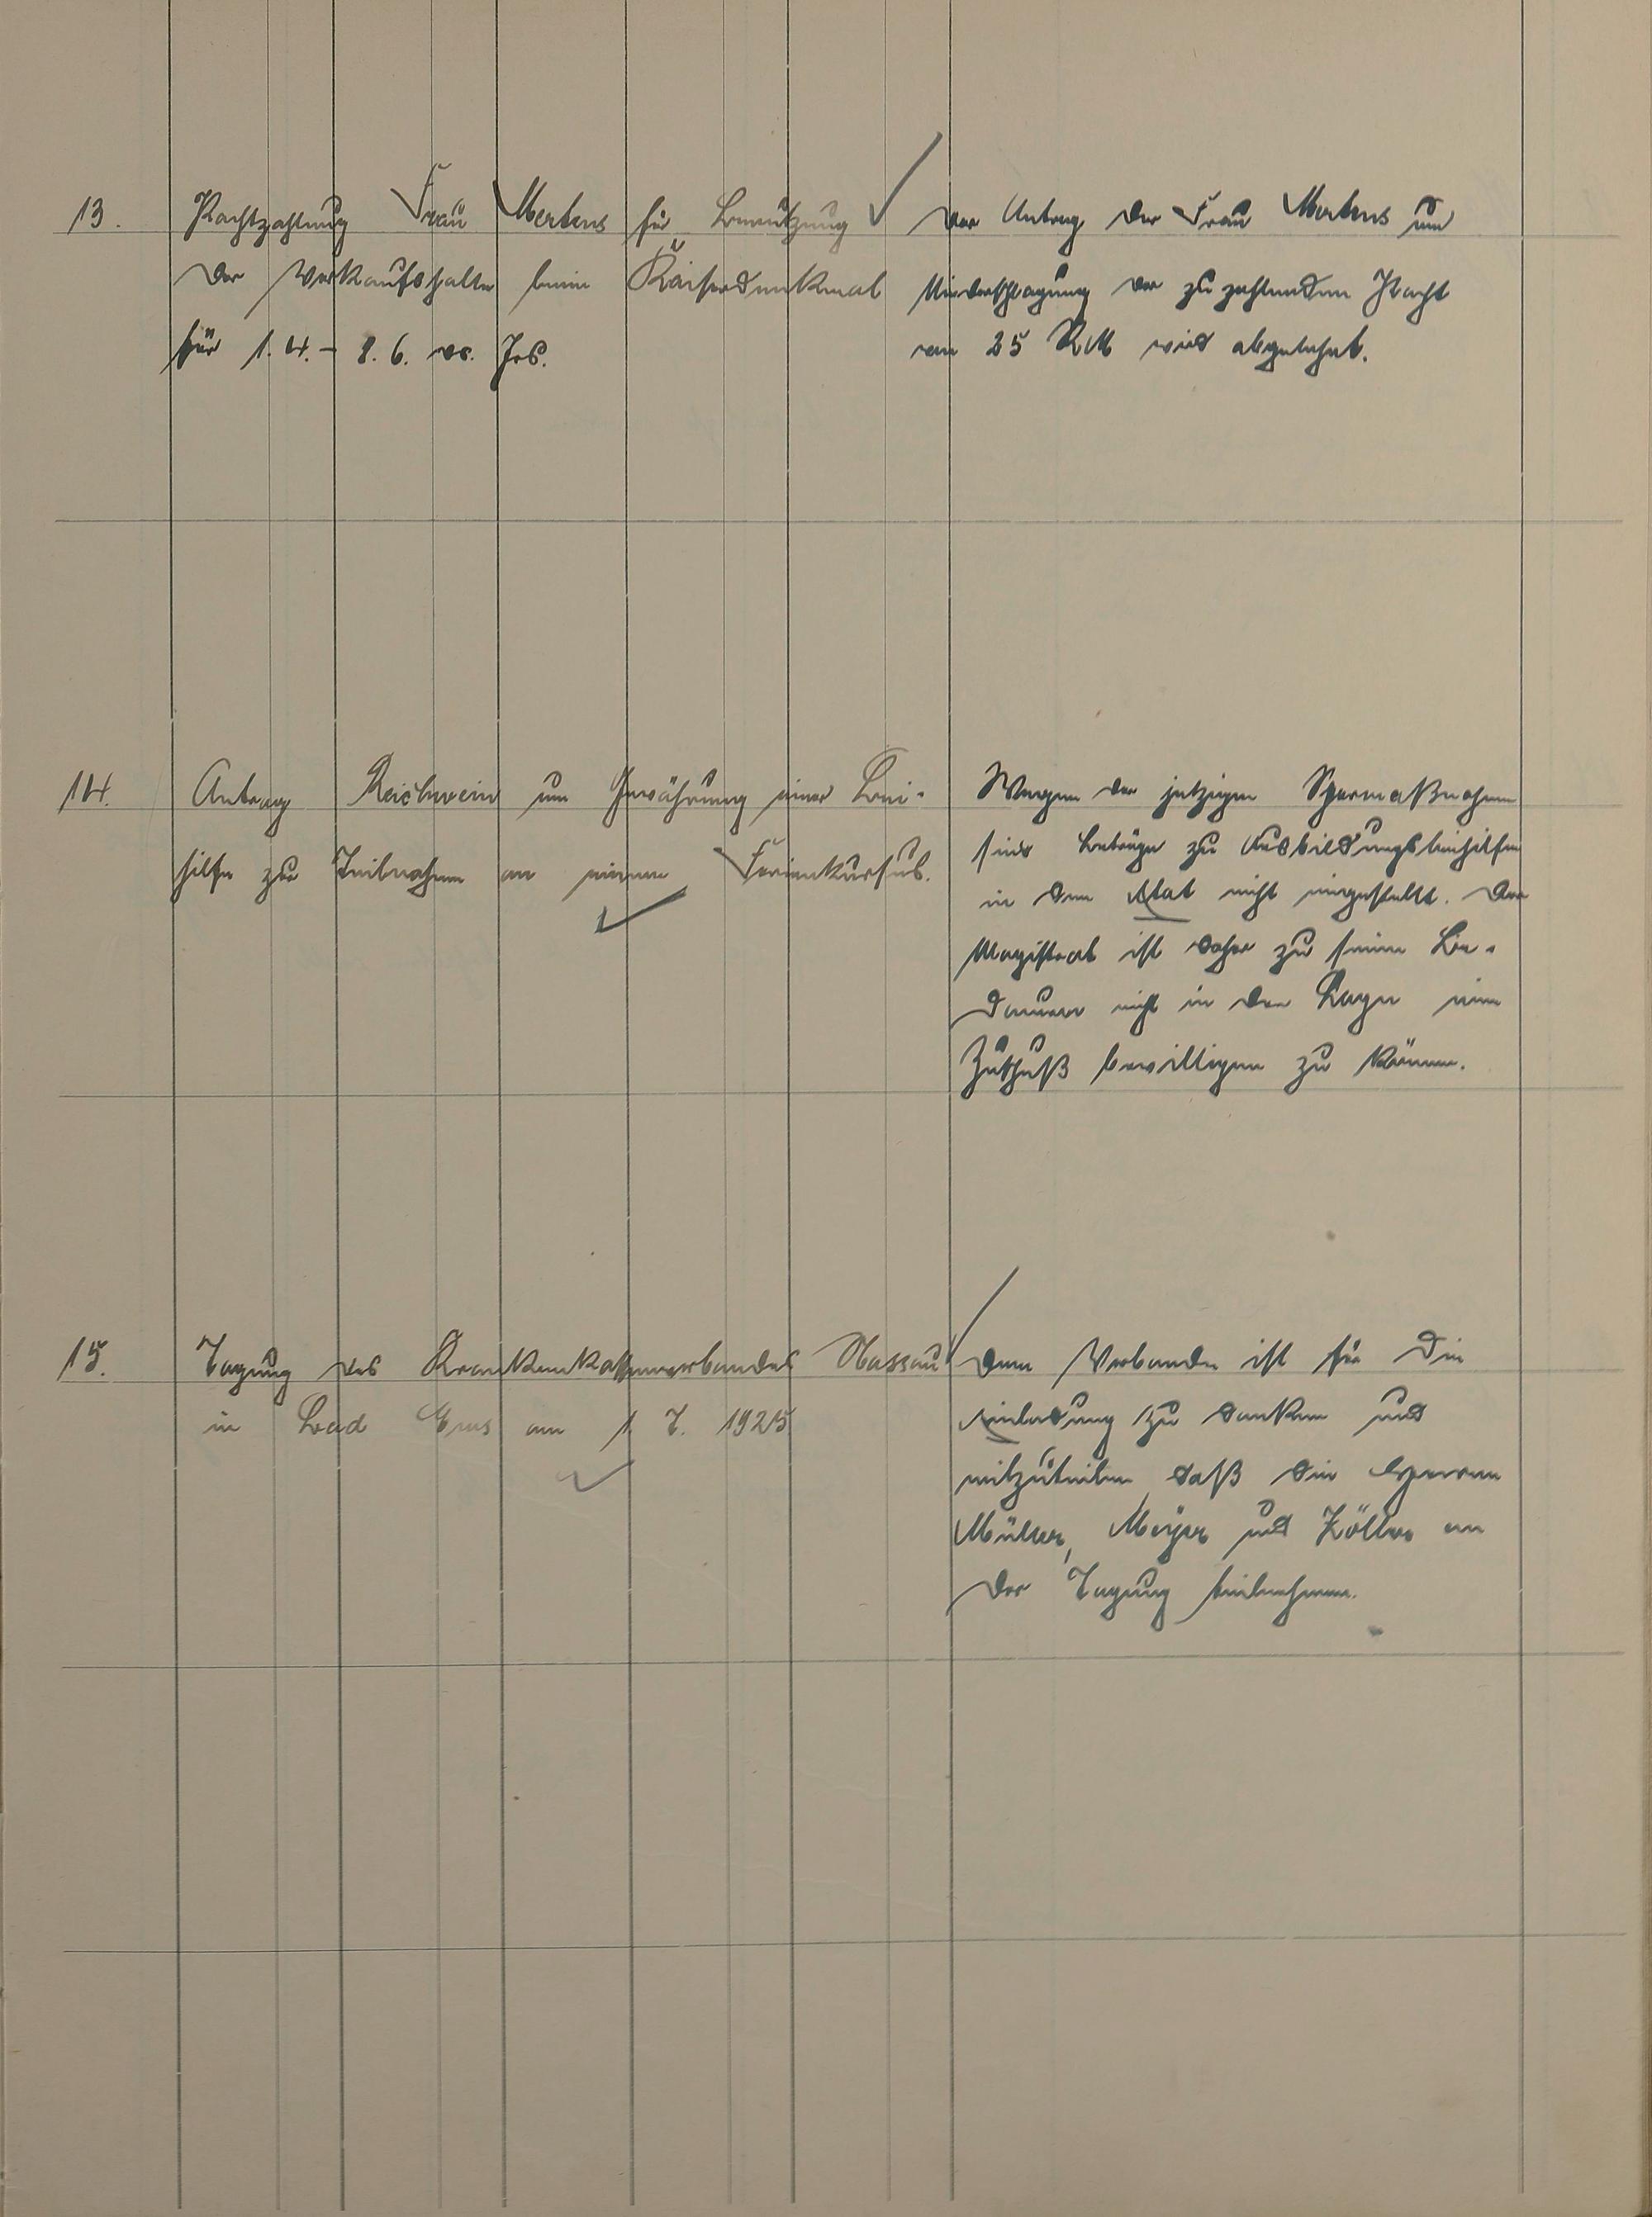 13.
Pachtzahlung Frau Mertens für Benutzung
der Verkaufshalle beim Kaiserdenkmal
für 1.4. - 8.6. ds. Jrs.
Der Antrag der Frau Mertens um
Niederschlagung der zu zahlenden Pacht
von 25 RM wird abgelehnt.
14.
Antrag Reichwein um Gewährung einer Bei-
hilfe zur Teilnahme an einem Ferienkursus.
Wegen der jetzigen Sparmaßnahmen
sind Beträge zu Ausbildungsbeihilfen
in dem Etat nicht eingestellt. Der
Magistrat ist daher zu seinem Be-
dauern nicht in der Lage einen
Zuschuß bewilligen zu können.
15.
Tagung des Krankenkassenverbandes Nassau
in Bad Ems am 1. 7. 1925
Dem Verbande ist für die
Einladung zu danken und
mitzuteilen daß die Herren
Müller, Meyer und Zöller an
der Tagung teilnehmen.